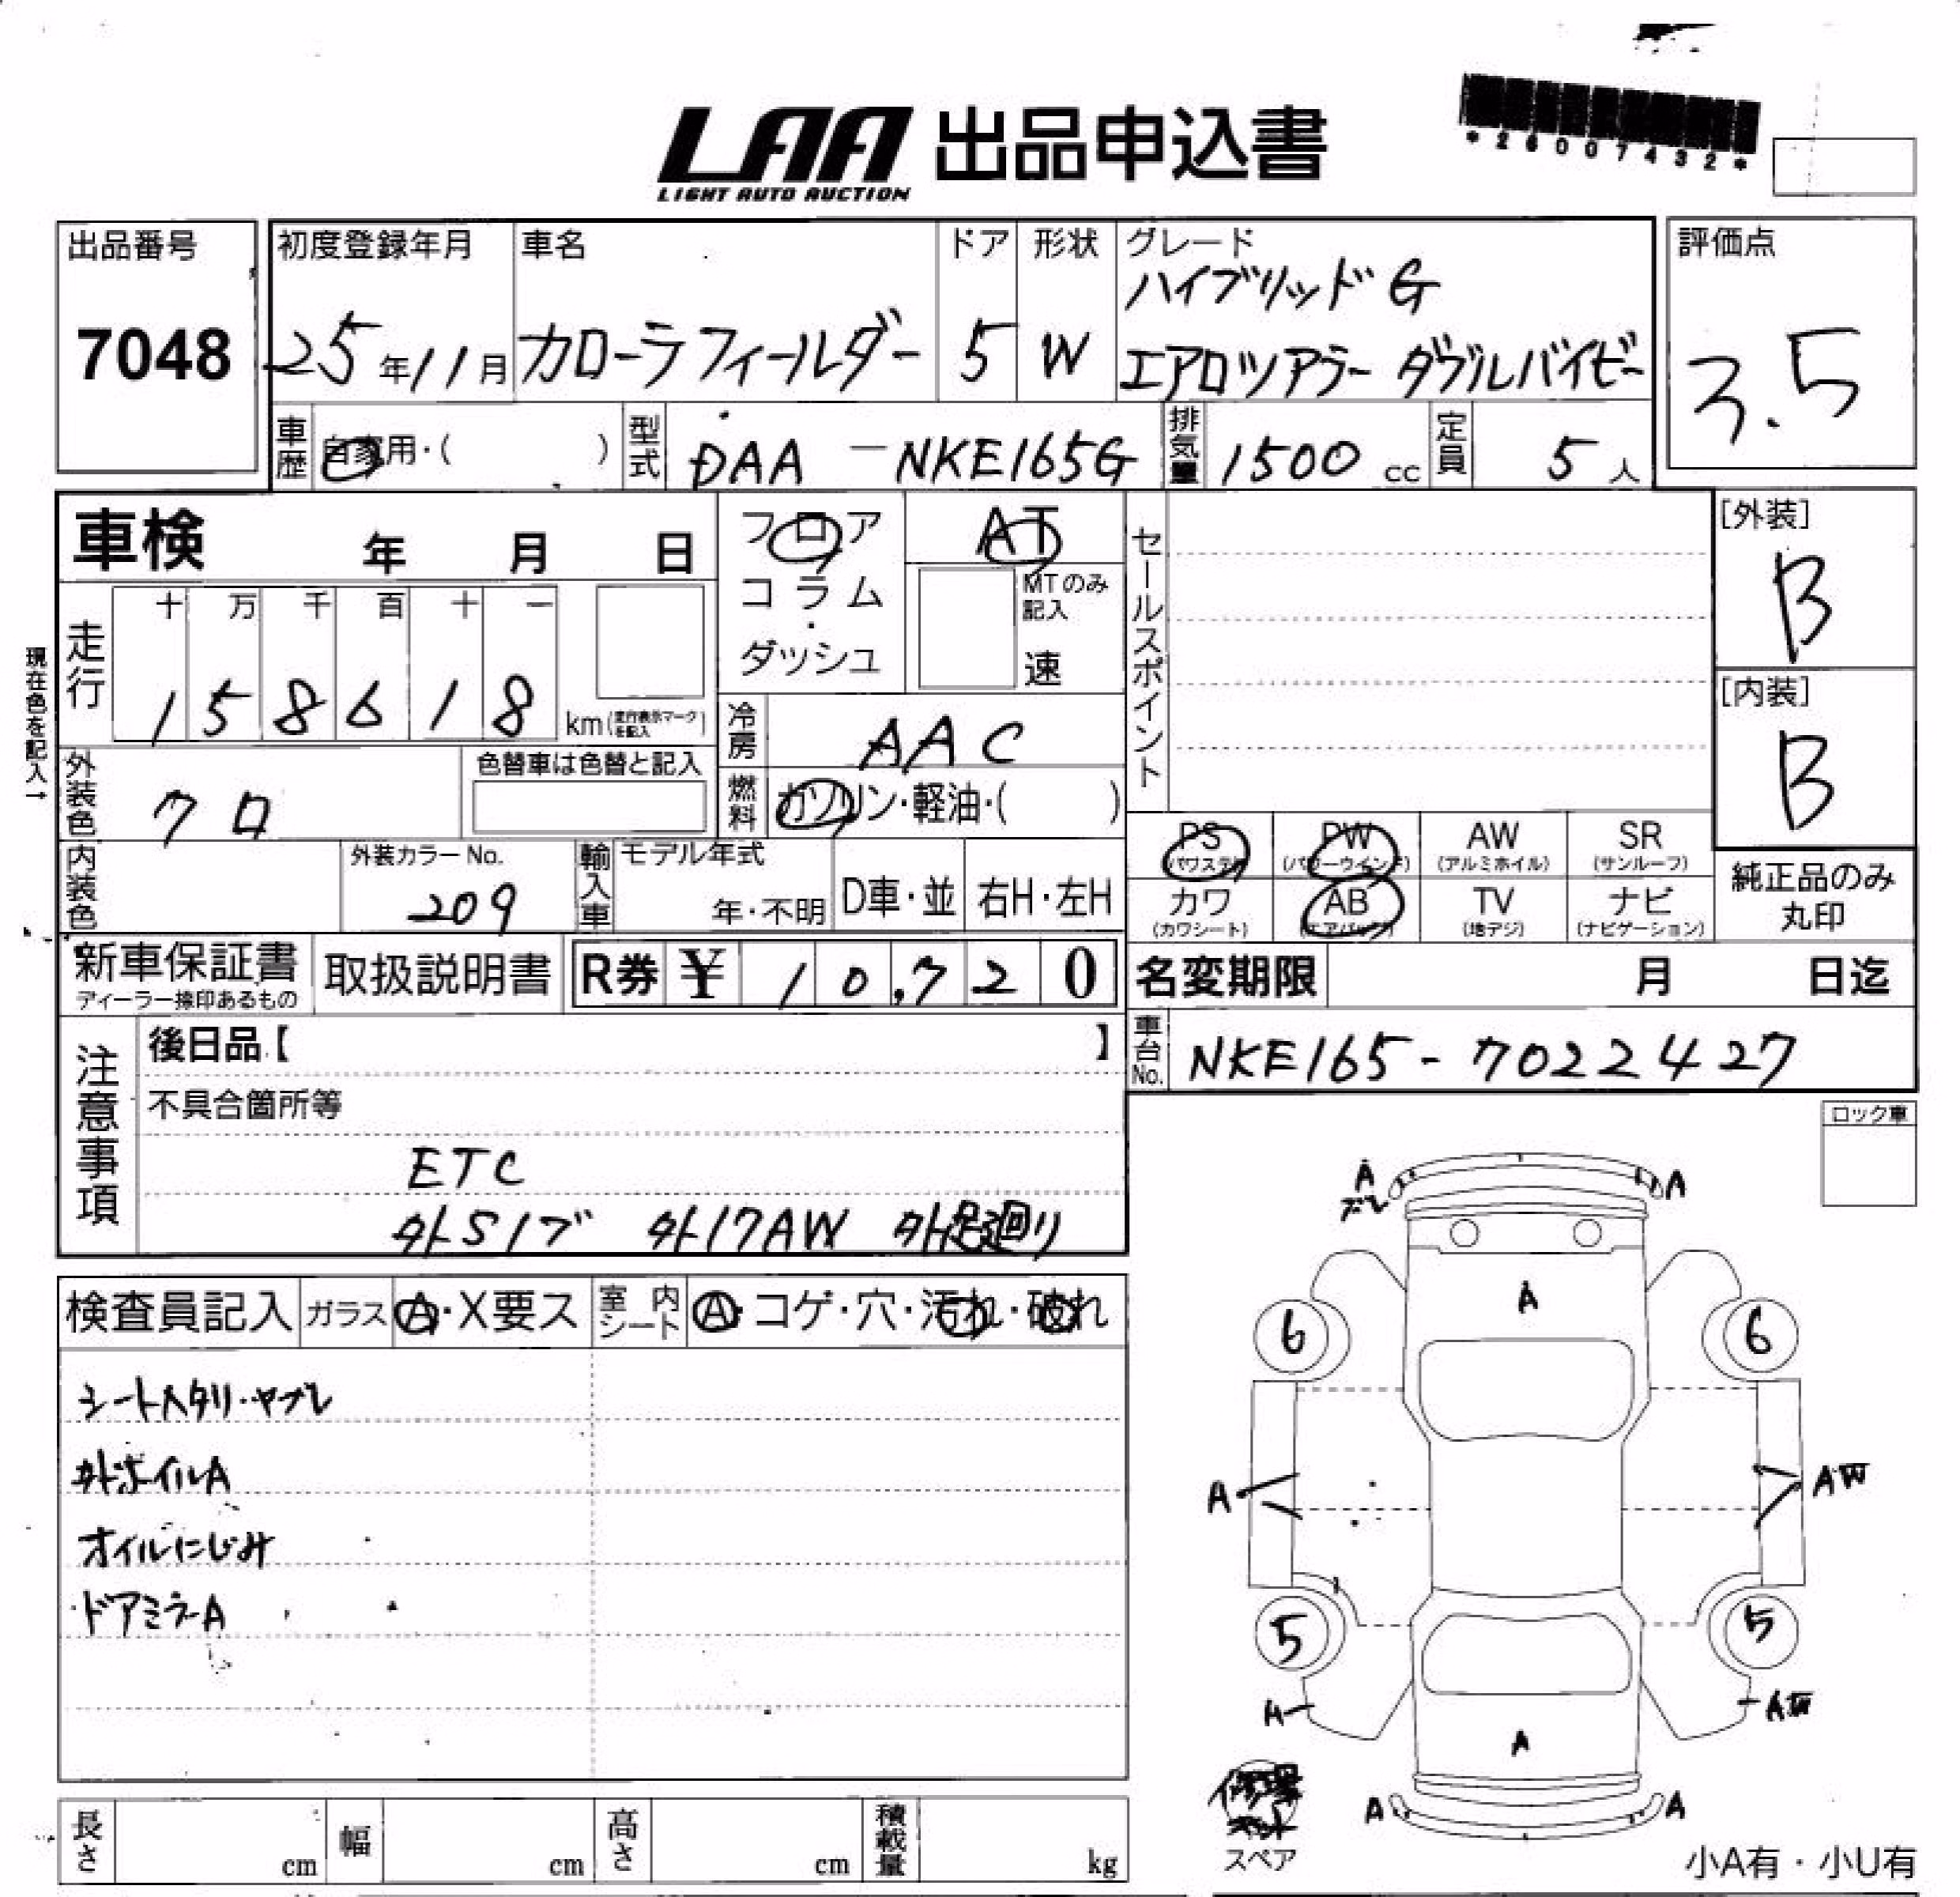 LAA 出品申込書
LIGHT AUTO AUCTION
*26007432*
出品番号
7048
初度登録年月
25年11月
車名
カローラフィールダー
ドア
5
形状
W
グレード
ハイブリッド G
エアロツアラー ダブルバイビー
評価点
3.5
車歴 自家用・( )
型式 DAA-NKE165G
排気量 1500 cc
定員 5 人
車検 年 月 日
フロア
コラム
・
ダッシュ
AT
MTのみ
記入
速
セールスポイント
[外装]
B
[内装]
B
現在色を記入→
走行
十 万 千 百 十 一
1 5 8 6 1 8 km(走行表示マークを記入)
冷房 AAC
燃料 ガソリン・軽油・( )
外装色 クロ
色替車は色替と記入
内装色
外装カラーNo.
209
輸入車
モデル年式
年・不明
D車・並
右H・左H
PS
(パワステ)
PW
(パワーウインド)
AW
(アルミホイル)
SR
(サンルーフ)
カワ
(カワシート)
AB
(エアバッグ)
TV
(地デジ)
ナビ
(ナビゲーション)
純正品のみ
丸印
新車保証書
ディーラー捺印あるもの
取扱説明書
R券 ¥ 10,720
名変期限 月 日迄
車台No. NKE165-7022427
注意事項
後日品【 】
不具合箇所等
ETC
外S/ブ 外17AW 外足廻り
ロック車
検査員記入
ガラス A・X要ス
室内シート A・コゲ・穴・汚れ・破れ
シートヘタリ・ヤブレ
外ホイルA
オイルにじみ
ドアミラーA
A
ズレ
A
A
6
6
A
AW
5
5
A
AW
A
A
A
修理
キット
スペア
小A有・小U有
長さ cm
幅 cm
高さ cm
積載量 kg